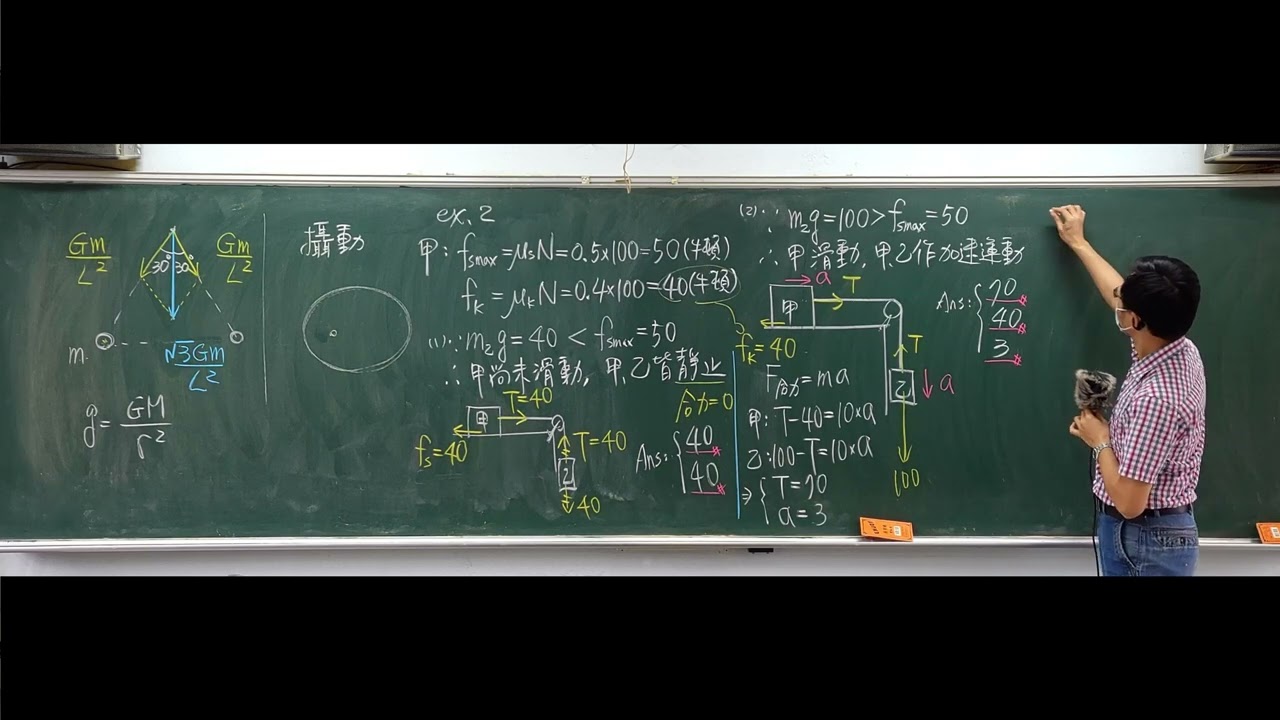 Gm/L²
Gm/L²
30° 30°
m
√3Gm/L²
g=GM/r²
攝動
ex. 2
甲: fsmax=μsN=0.5×100=50(牛頓)
fk=μkN=0.4×100=40(牛頓)
(1)∵m₂g=40<fsmax=50
∴甲尚未滑動, 甲、乙皆靜止
合力=0
T=40
甲
fs=40
T=40
乙
40
Ans:{40
40
(2)∵m₂g=100>fsmax=50
∴甲滑動, 甲乙作加速運動
a
T
甲
fk=40
T
乙
a
100
F合力=ma
甲: T-40=10×a
乙:100-T=10×a
⇒{T=70
a=3
Ans:{70
40
3